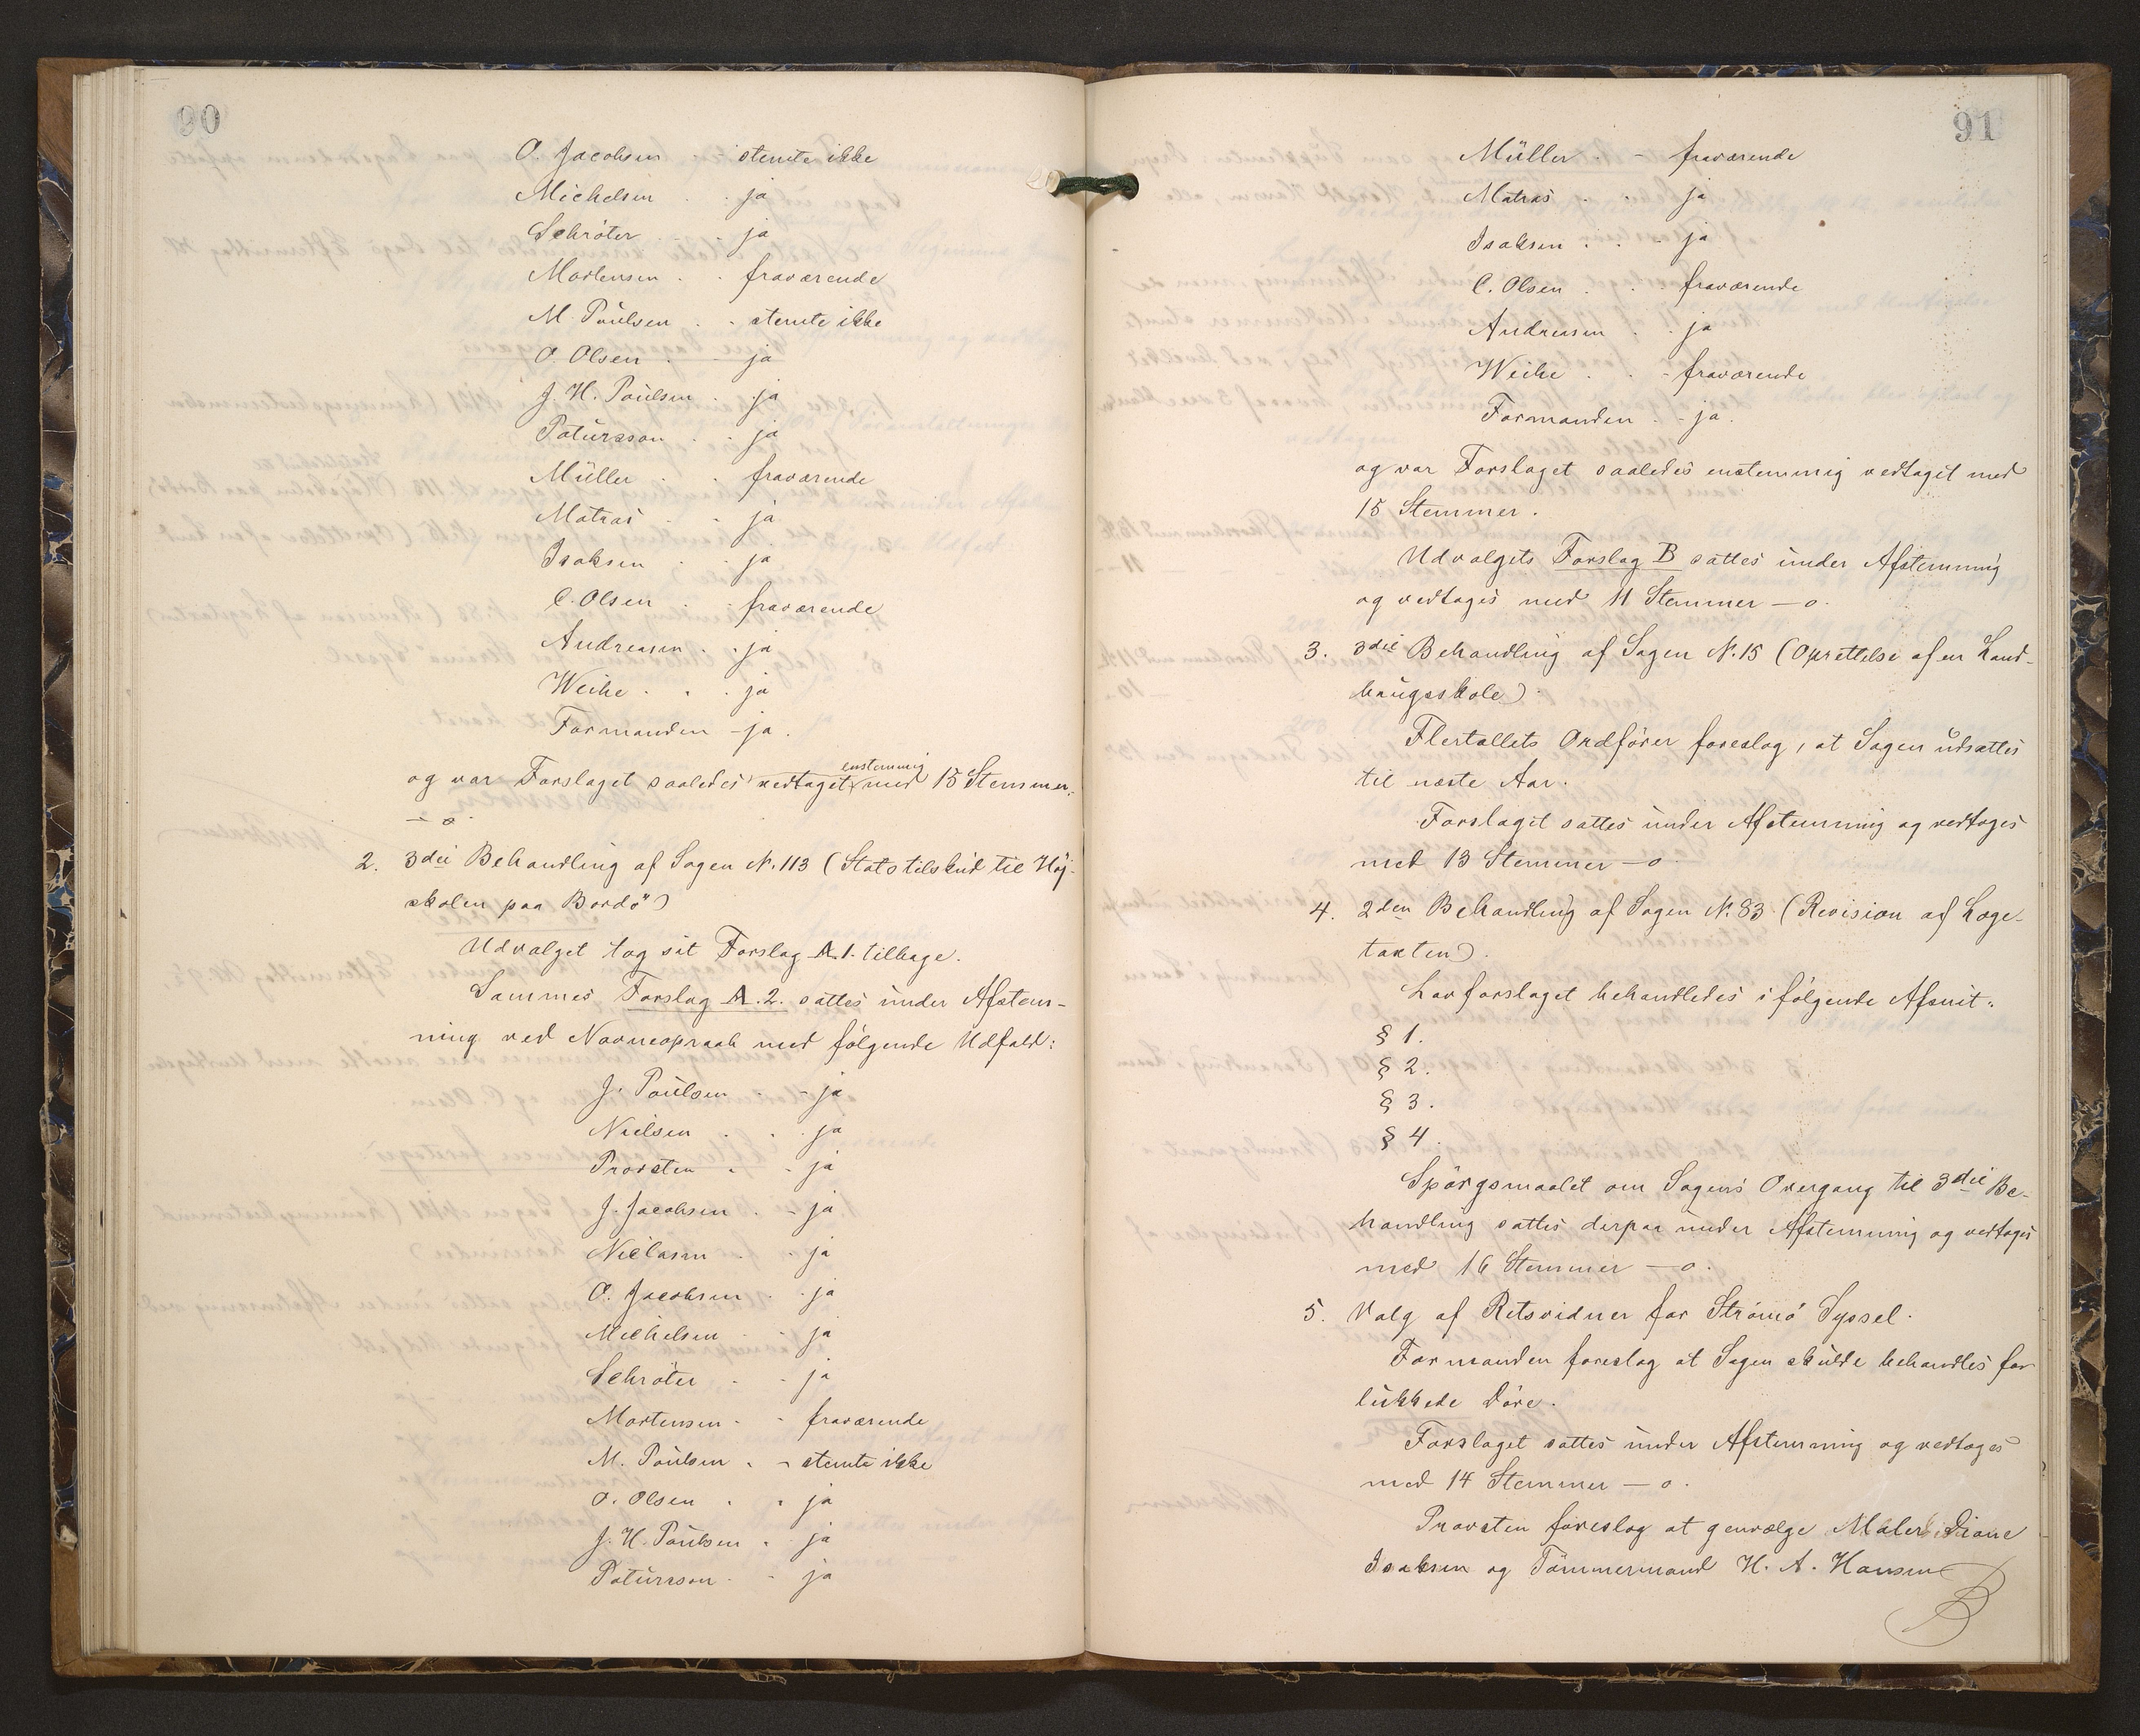 90
O. Jacobsen . - stemte ikke
Michelsen . . ja
Schröter . - . ja
Mortensen . . fraværende
M. Poulsen . . stemte ikke
O. Olsen . - ja
J. H. Poulsen . . ja
Patursson . . ja
Müller . . fraværende
Matras . . ja
Isaksen . . ja
C. Olsen . . fraværende
Andreasen . . ja
Weihe . . . ja
Formanden - ja.
og var Forslaget saaledes vedtaget enstemmig med 15 Stemmer.
— o.
2. 3die Behandling af Sagen N. 113 (Statstilskud til Höj-
skolen paa Bordö")
Udvalget tog sit Forslag A. 1. tilbage.
Sammes Forslag A. 2. sattes under Afstem-
ning ved Navneopraab med følgende Udfald:
J. Poulsen . - ja
Nielsen . . . ja
Provsten . . ja
J. Jacobsen . - ja
Niclasen . . ja
O. Jacobsen . . ja
Michelsen . . ja
Schröter . . ja
Mortensen . . fraværende
M. Poulsen . - stemte ikke
O. Olsen . . ja
J. H. Poulsen . ja
Patursson . - ja
91
Müller . - fraværende
Matras . . ja
Isaksen . . - ja
C. Olsen . . . fraværende
Andreasen . . ja
Weihe . . - fraværende
Formanden . - ja.
og var Forslaget saaledes enstemmig vedtaget med
15 Stemmer.
Udvalgets Forslag B sattes under Afstemning
og vedtoges med 11 Stemmer — o.
3. 3die Behandling af Sagen N. 15 (Oprettelse af en Land-
brugsskole).
Flertallets Ordförer foreslog, at Sagen udsattes
til næste Aar.
Forslaget sattes under Afstemning og vedtoges
med 13 Stemmer — o.
4. 2den Behandling af Sagen N. 83 (Revision af Læge-
taxten).
Lovforslaget behandledes i følgende Afsnit:
§ 1.
§ 2.
§ 3.
§ 4.
Spörgsmaalet om Sagens Overgang til 3die Be-
handling sattes derpaa under Afstemning og vedtoges
med 16 Stemmer — o.
5. Valg af Retsvidner for Strömö Syssel.
Formanden foreslog at Sagen skulde behandles for
lukkede Döre.
Forslaget sattes under Afstemning og vedtoges
med 14 Stemmer — o.
Provsten foreslog at genvælge Maler Diane
Isaksen og Tömmermand H. A. Hansen